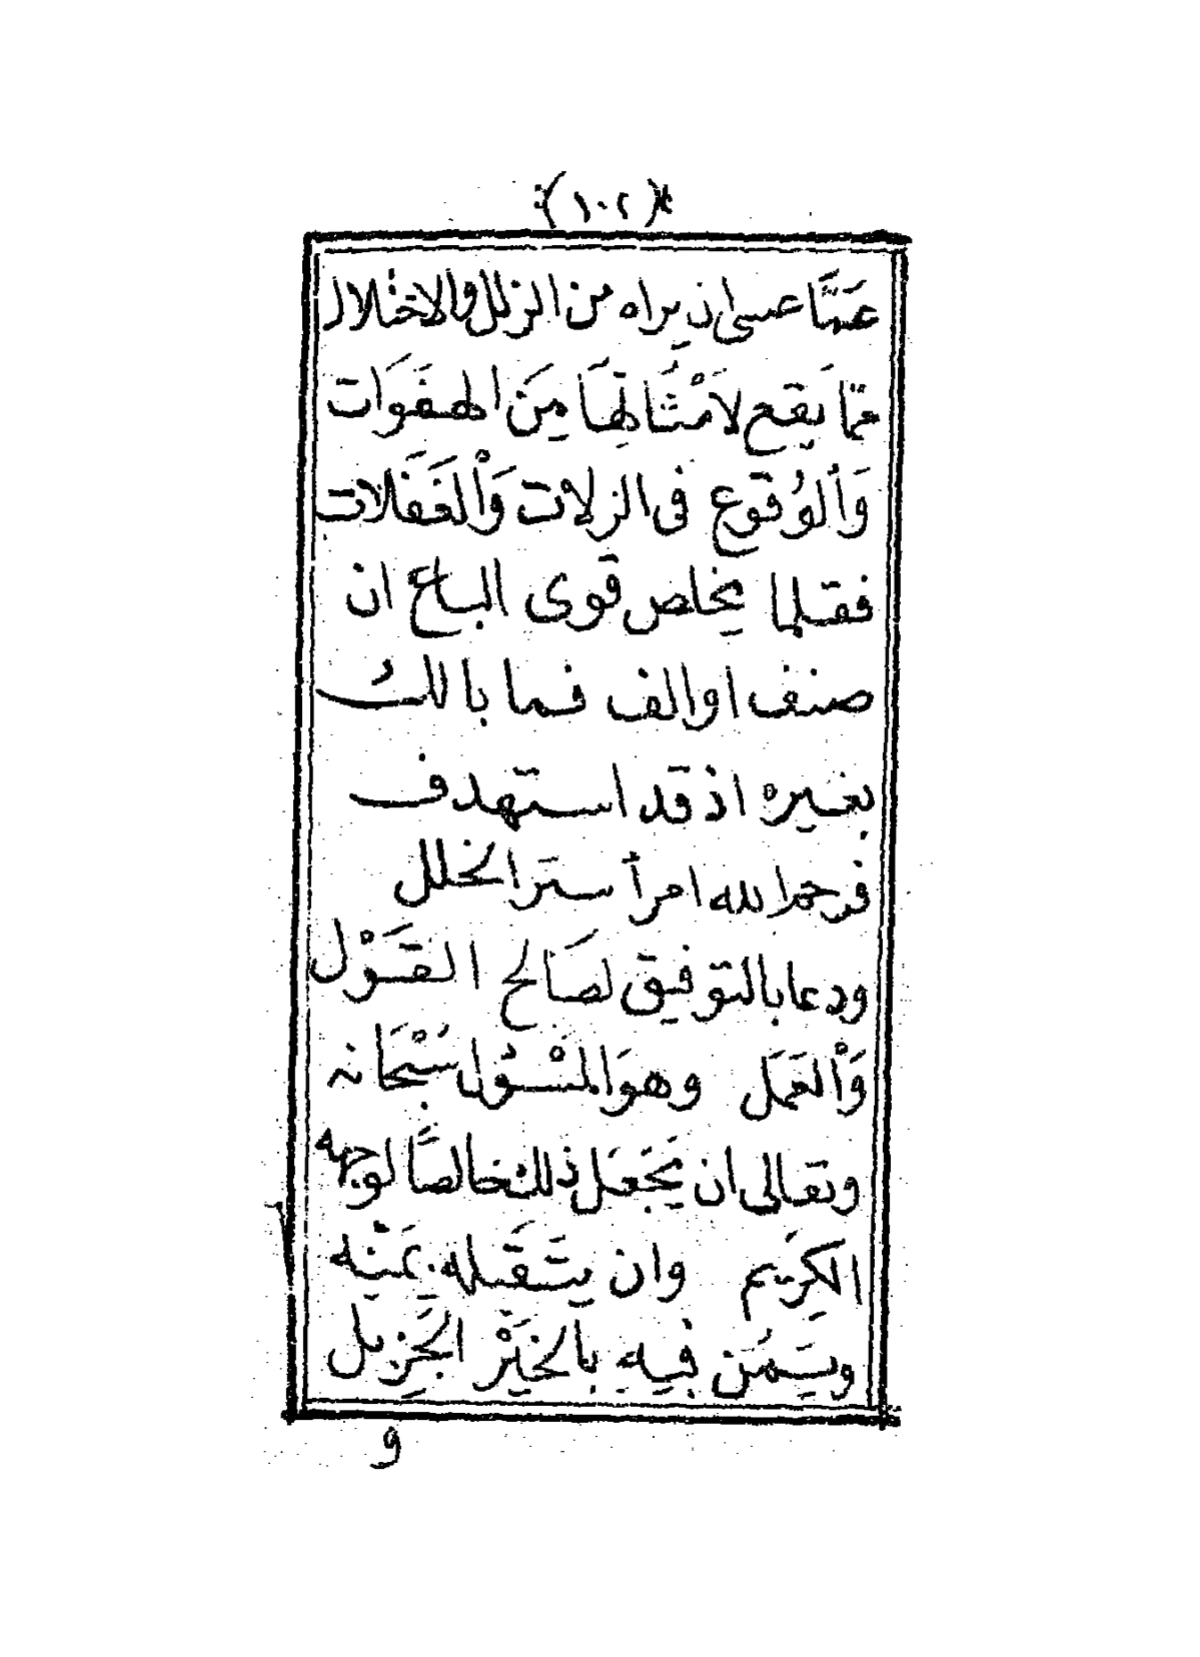 (١٠٢)
عَمَّا عسى ان يراه من الزلل والاختلال
ممّا يَقع لاَمْثُالهَا مِنَ الهفَوَات
وَألوُقوع فى الزلات وَاْلغَفَلات
فقلما يخلص قوى الباع ان
صنف اوالف فما بالك
بغيره اذ قد استهدف
فرحم الله امرأ ستر الخلل
ودعا بالتوفيق لصَالح القَوْل
وَاْلعَمَل وهوَ المسْئول سُبْحَانه
وتعالى ان يَجَعَل ذلك خالصًا لوجهه
الكِريم وان يتَقَبله بمَنّه
ويَمُن فيه بالخيَرْ الجَزيل
و